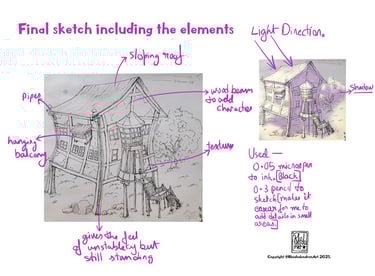 Final sketch including the elements
Light Direction.
sloping roof
pipes
wood beam
to add
character
shadow
hanging
balcony
texture
gives the feel
of unstability but
still standing
Used —
0.05 micropen
to ink. Black
0.3 pencil to
sketch (makes it
easier for me to
add details in small
areas.